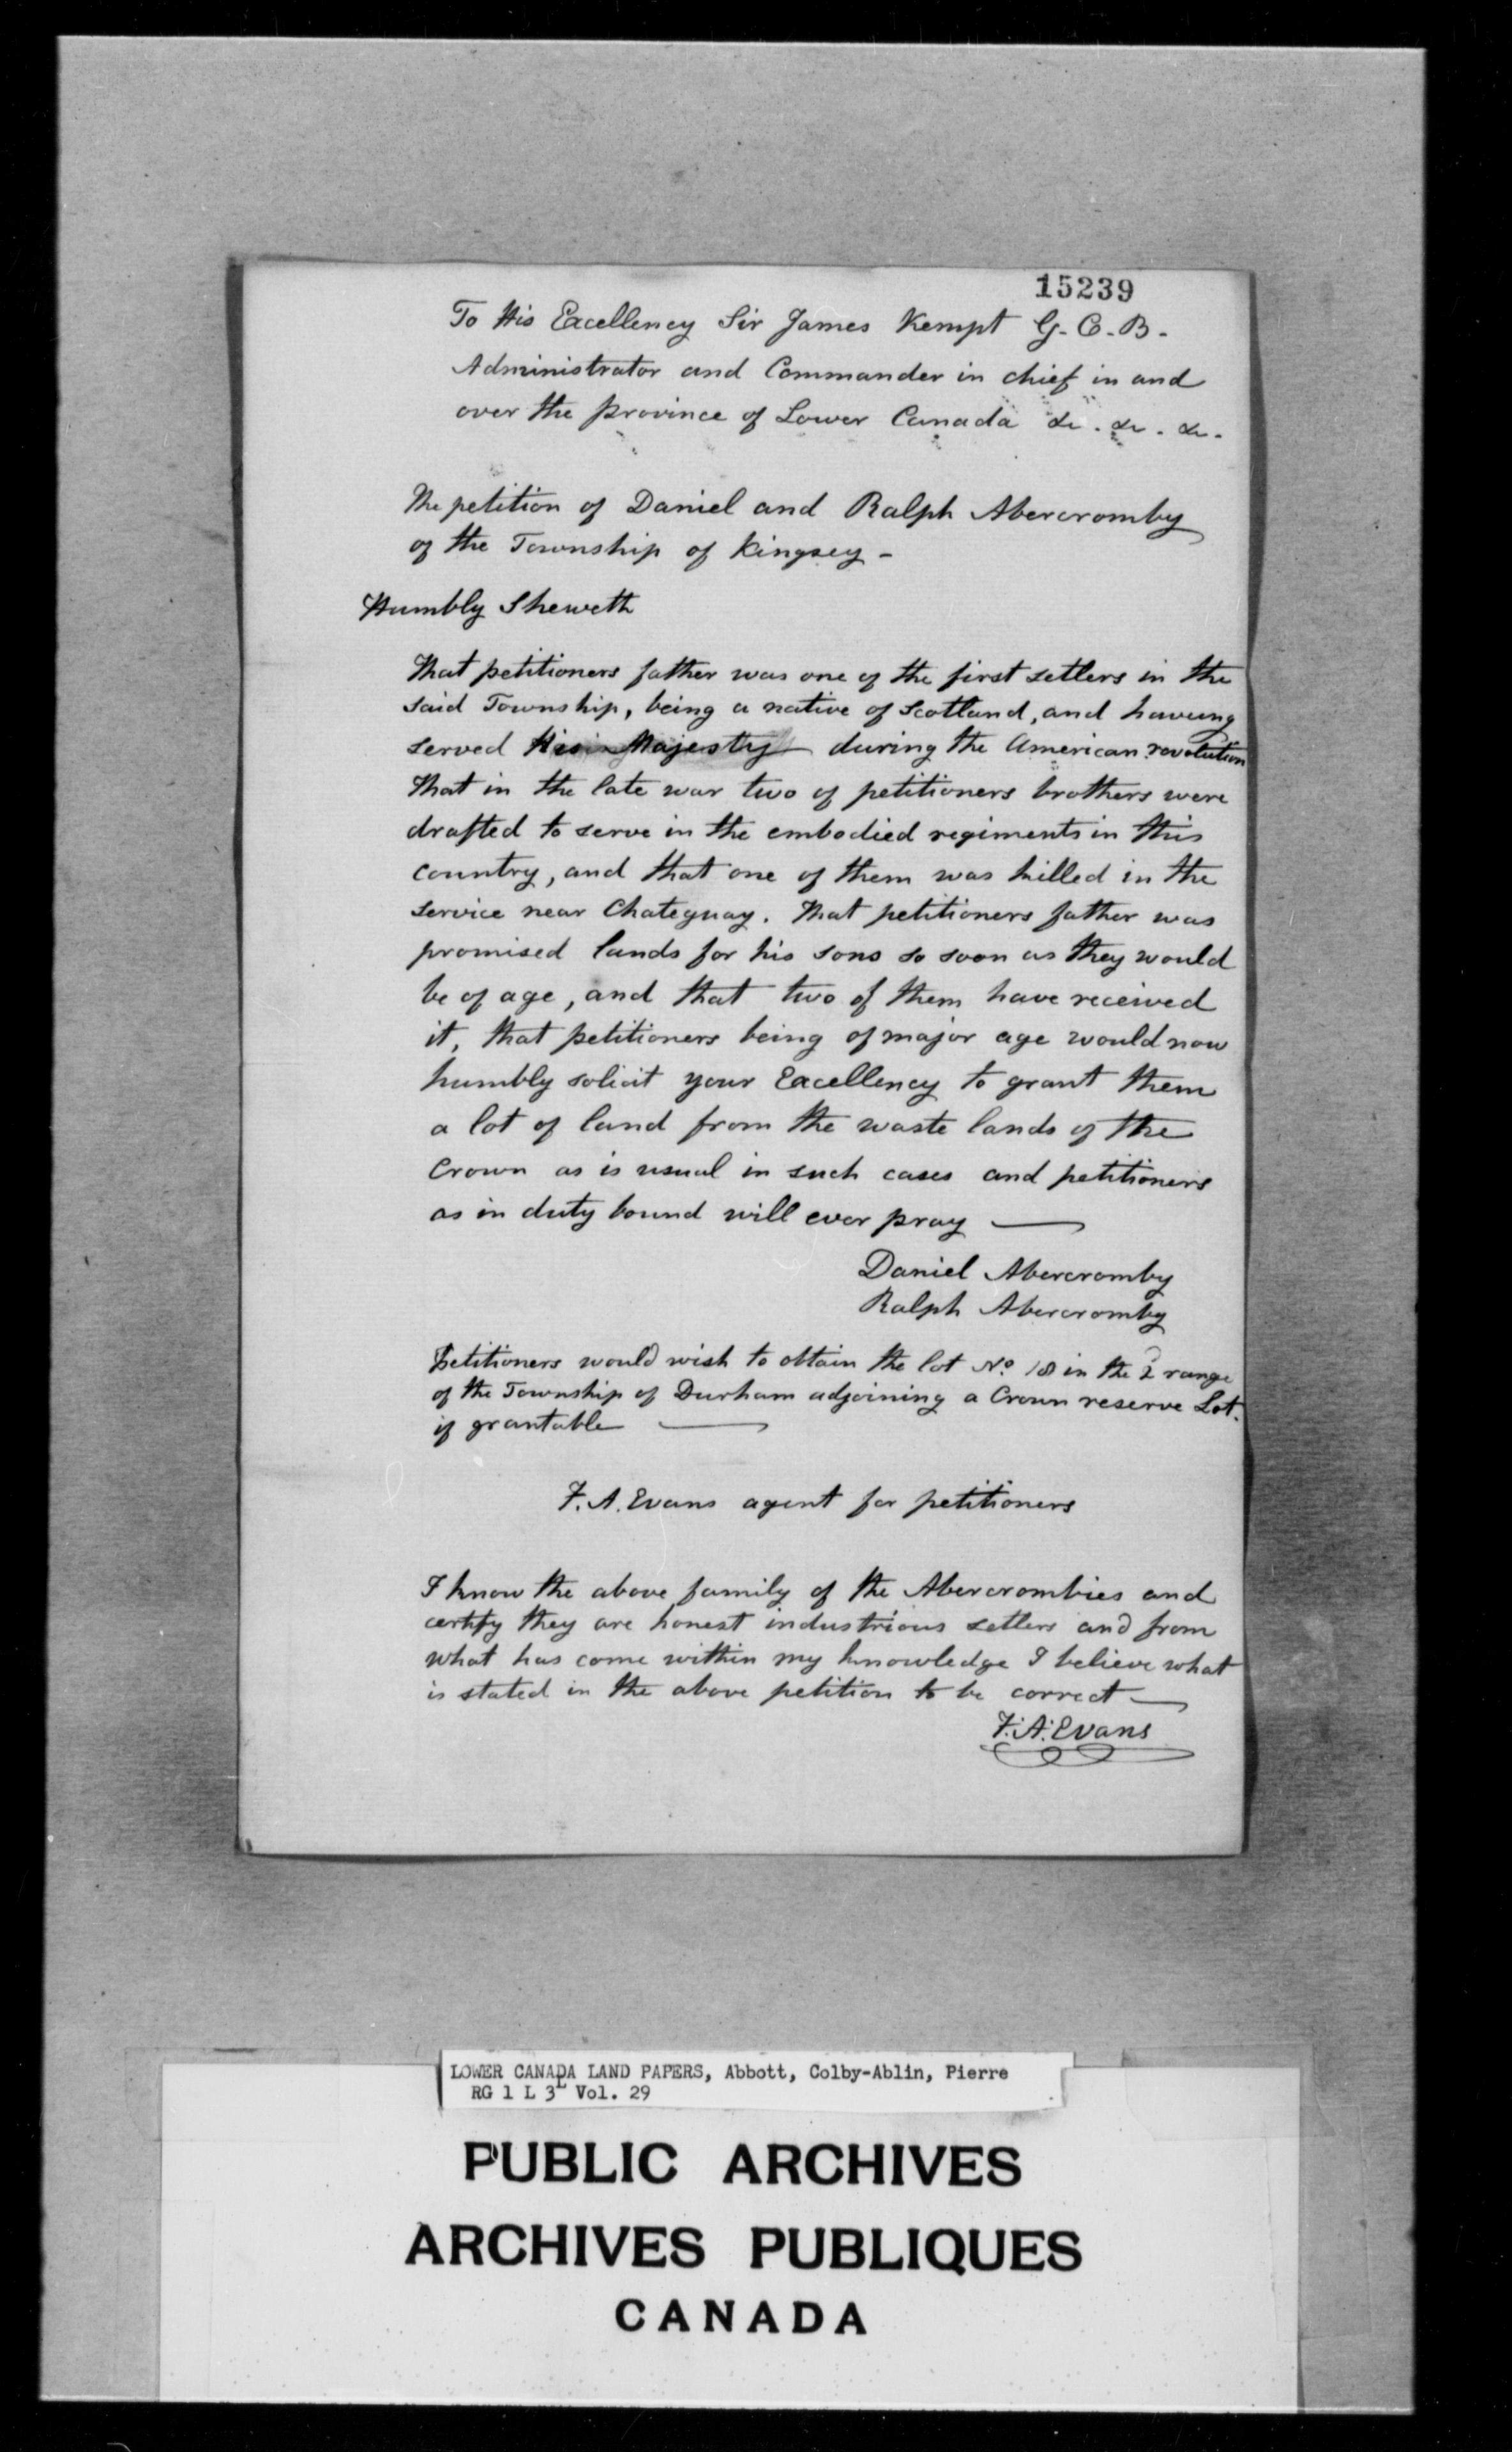 15239
To His Excellency Sir James Kempt G. C. B.
Administrator and Commander in chief in and
over the province of Lower Canada &c. &c. &c.
The petition of Daniel and Ralph Abercromby
of the Township of Kingsey -
Humbly Sheweth
That petitioners father was one of the first setlers in the
said Township, being a native of Scotland, and haveing
served His Majesty during the American revolution
That in the late war two of petitioners brothers were
drafted to serve in the embodied regiments in this
country, and that one of them was killed in the
service near Chateguay. That petitioners father was
promised lands for his sons so soon as they would
be of age, and that two of them have received
it, that petitioners being of major age would now
humbly solicit your Excellency to grant them
a lot of land from the waste lands of the
Crown as is usual in such cases and petitioners
as in duty bound will ever pray —
Daniel Abercromby
Ralph Abercromby
Petitioners would wish to obtain the lot No. 18 in the 2d range
of the Township of Durham adjoining a Crown reserve Lot.
if grantable —
F. A. Evans agent for petitioners
I know the above family of the Abercrombies and
certify they are honest industrious setlers and from
what has come within my knowledge I believe what
is stated in the above petition to be correct —
F. A. Evans
LOWER CANADA LAND PAPERS, Abbott, Colby-Ablin, Pierre
RG 1 L 3L Vol. 29
PUBLIC ARCHIVES
ARCHIVES PUBLIQUES
CANADA